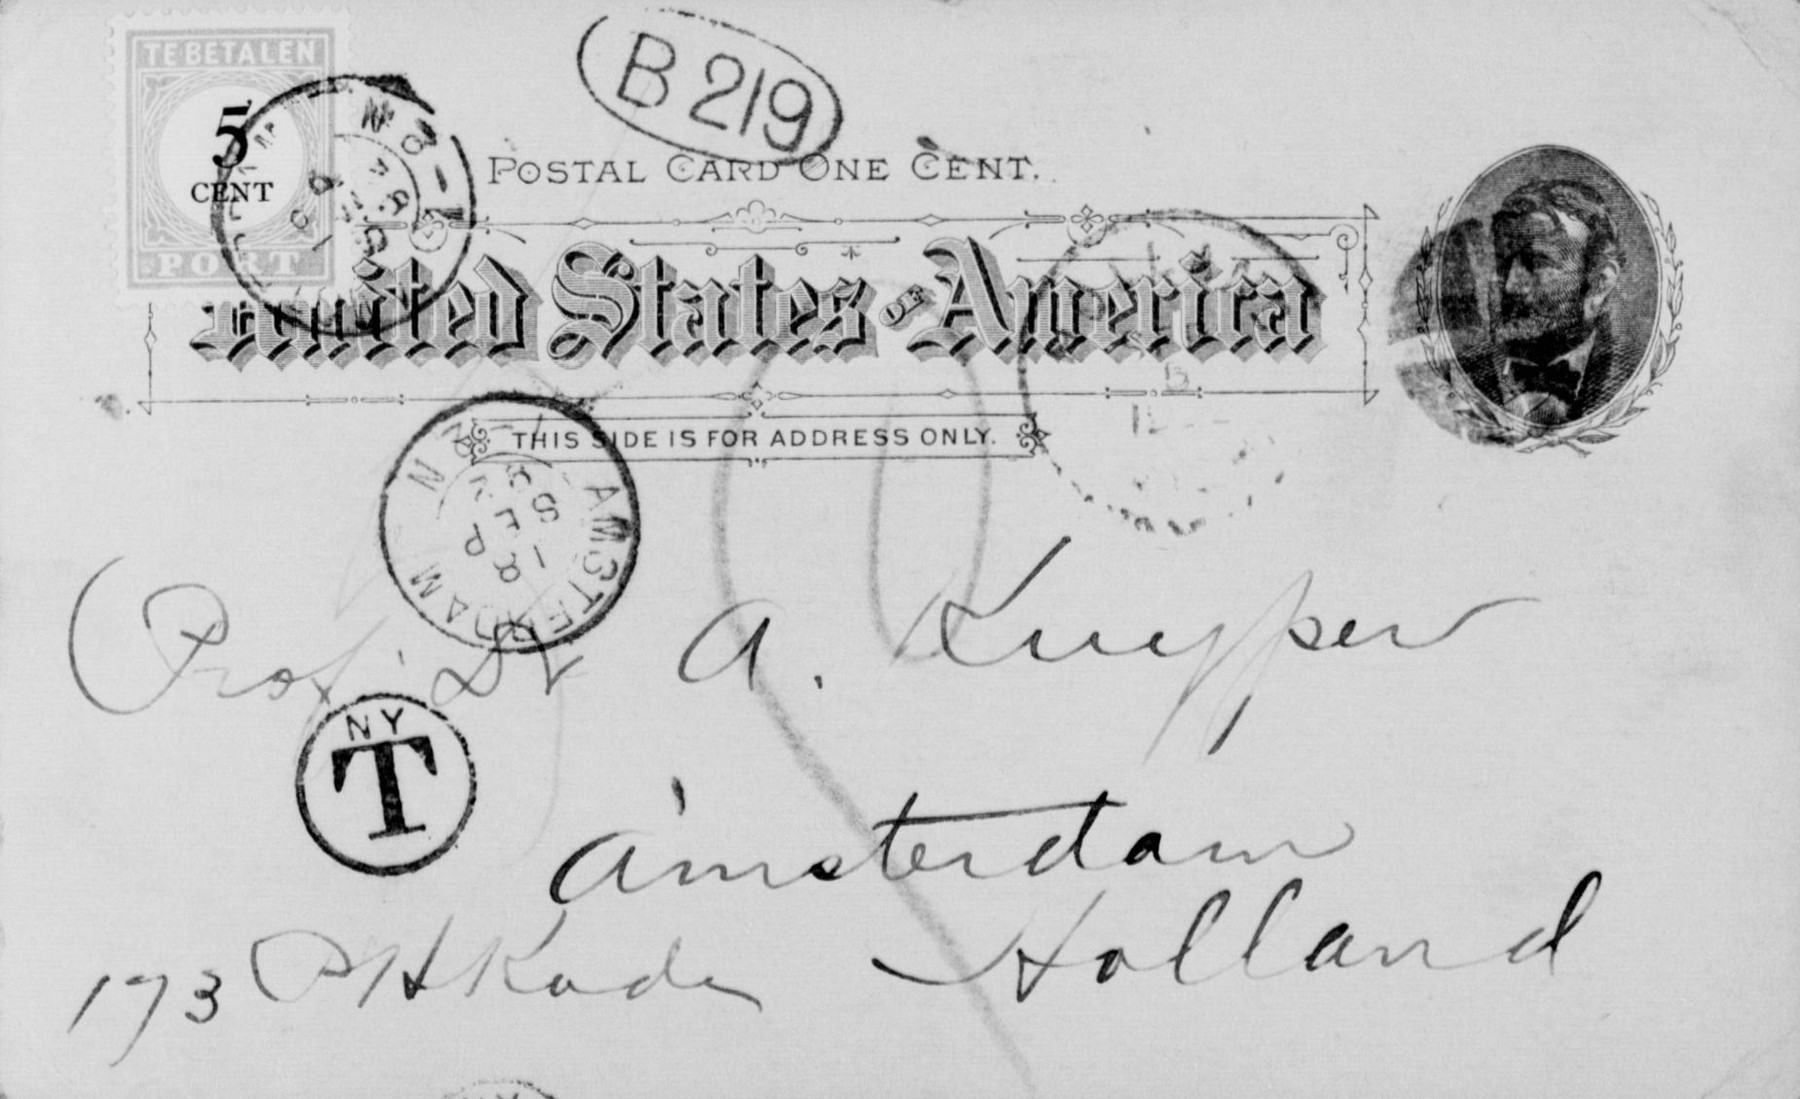 TE BETALEN
5
CENT
PORT
B 219
POSTAL CARD ONE CENT.
United States OF America
THIS SIDE IS FOR ADDRESS ONLY.
AMSTERDAM
Prof. Dr A. Kuyper
NY
T
Amsterdam
Holland
173 PHKade